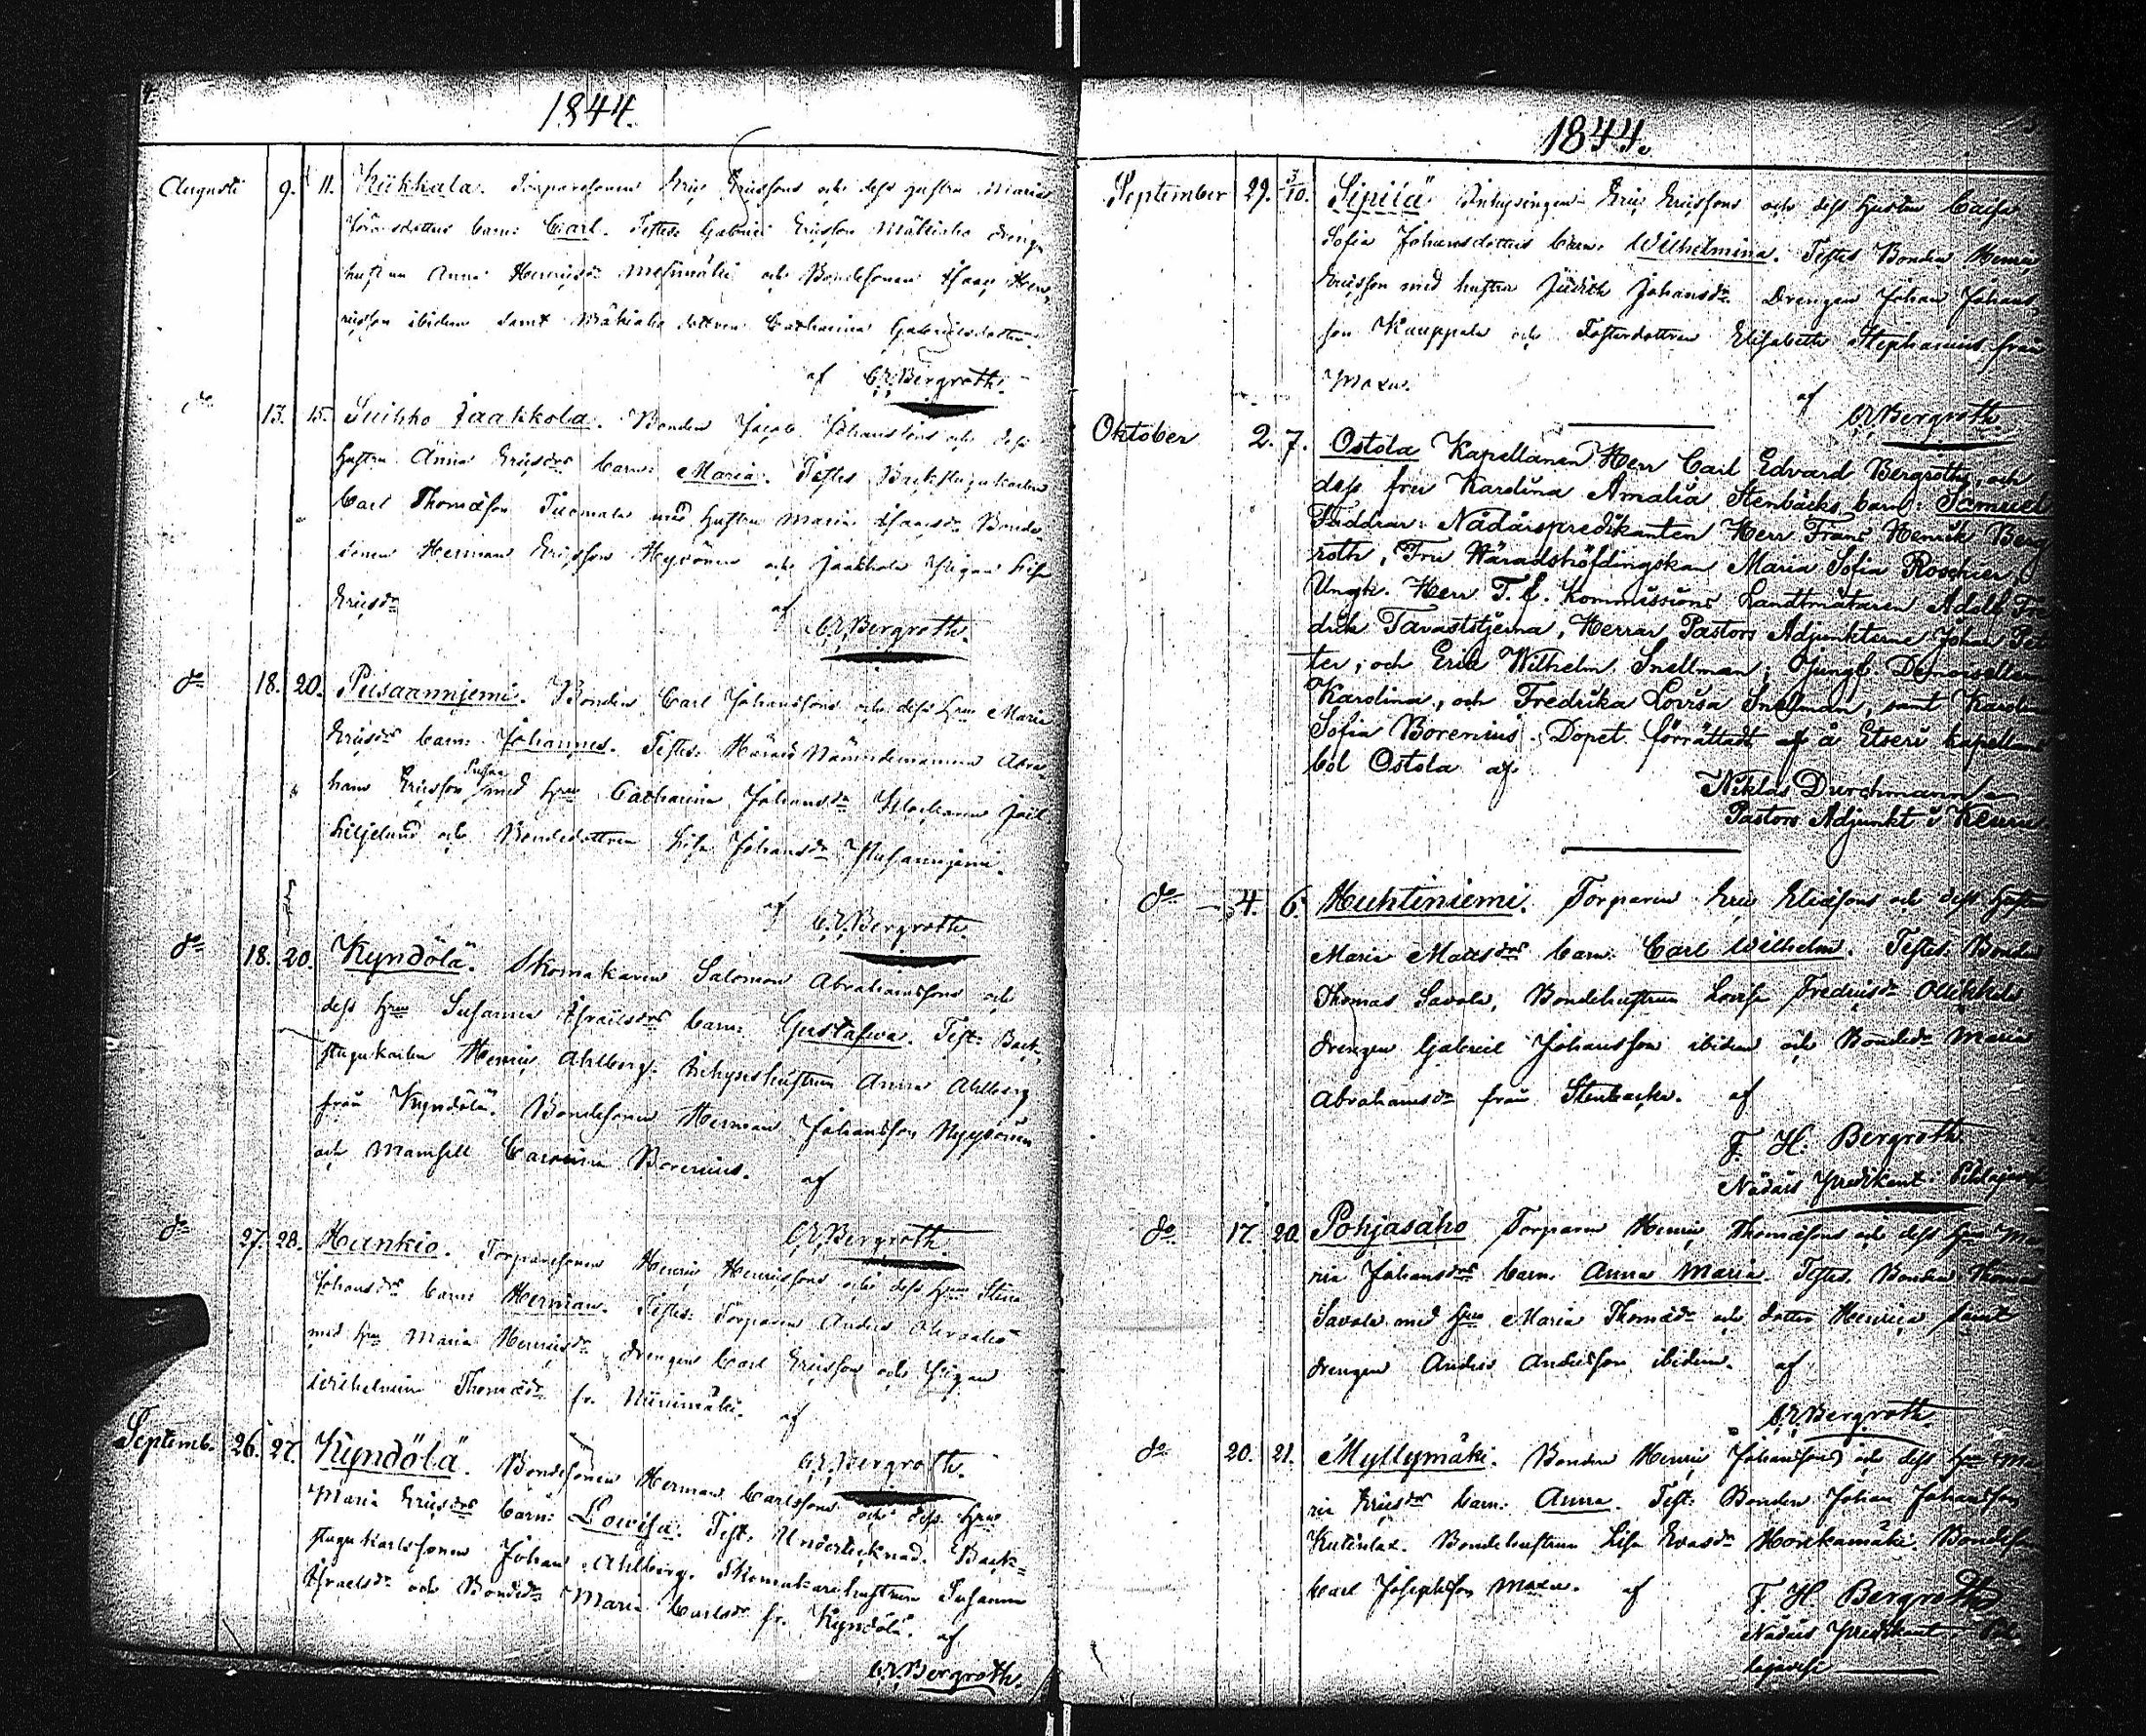 1844.
Augusti 9. 11. Kükkala. Torparesonen Eric Ericssons och dess hustru Maria
barn: Carl. Testes: Gabriel Ericsson Mäkiaho drenge
hustrun Anna Henricsdr och Bondesonen Isaac Hen-
ricsson ibidem samt Mäkiaho dottren Catharina Gabrielsdotter.
af C.E. Bergroth.
do 13. 15. Suikko Jaakkola. Bonden Jacob Johanssons och dess
hustru Anna Ericsdrs barn: Maria. Testes Backstugukarlen
Carl Thomasson Tuomala med hustru Maria Isaacsdr Bonde-
sonen Herman Ericsson och Jaakkola Pigan Lisa
Ericsdr
af
C.E. Bergroth.
do 18. 20. Pusaannjemi. Bonden Carl Johanssons och dess Hru Maria
Ericsdrs barn: Johannes. Testes: Härads Nämndemannen Abra-
ham Ericsson med Hru Catharina Johansdr Klockaren Joël
Liljelund och Bondedottren Lisa Johansdr
af
C.E. Bergroth.
do 18. 20. Kyndölä. Skomakaren Salomon Abrahamssons och
dess Hru Susanna Israelsdrs barn: Gustafwa. Test: Back-
stugukarlen Henric Ahlberg. Inhyseshustrun Anna Ahlberg
från Kyndölä. Bondesonen Herman Johansson Nyyssönen
och Mamsell Carolina Borenius.
af
C.E. Bergroth.
do 27. 28. Hankio. Torparesonen Henric Henricssons och dess Hru Stina
Johansdrs barn: Herman. Testes: Torparen Anders
med Hru Maria Henricsdr, drengen Carl Ericsson och Pigan
Wilhelmina Thomasdr fr. Niinimäki.
af
C.E. Bergroth.
Septemb. 26. 27. Kyndölä. Bondesonen Herman Carlssons och dess Hru
Maria Ericsdrs barn: Lowisa. Test. Undertecknad. Back-
stugukarlssonen Johan Ahlberg. Skomakarehustrun Susanna
Israelsdr och Bondedr Maria Carlsdr fr. Kyndölä.
af
C.E. Bergroth.
1844.
September 29. 3/10. Sipilä Inhysingen Eric Ericssons och dess hustru Caisa
Sofia Johansdotters barn: Wilhelmina. Testes Bonden Henric
Ericsson med hustru Judith Johansdr Drengen Johan Johans-
son Kauppala och Fosterdottren Elisabeth Stephansdr från
Maxu.
af
C.E. Bergroth.
Oktober 2. 7. Ostola Kapellanen Herr Carl Edvard Bergroths, och
dess fru Karolina Amalia Stenbäcks barn: Samuel
Faddrar: Nådårspredikanten Herr Frans Henrik Berg
roth, Fru Häradshöfdingskan Maria Sofia Roschier,
Ungk. Herr T.f. Kommissions Landtmätaren Adolf Fre
drik Tavaststjerna, Herrar Pastors Adjunkterne Johan Pet
ter, och Erik Wilhelm Snellman, Jungf. Demoisellerna
Karolina, och Fredrika Lovisa Snellman, samt Karolina
Sofia Borenius. Dopet förrättadt af å Etseri kapellans
bol Ostola af
Niklas Durchman
Pastors Adjunkt i Keuru.
do 4. 6. Huhtiniemi. Torparen Eric Eliassons och dess hustru
Maria Mattsdrs barn: Carl Wilhelm. Testes: Bonden
Thomas Savola, Bondehustrun Lovisa Fredricsdr Ollikkala
drengen Gabriel Johansson ibidem och Bondedr Maria
Abrahamsdr från Stenbacka. af
F. H. Bergroth
Nådårs Predikant
do 17. 20. Pohjasaho Torparen Henric Thomassons och dess Hru Ma
ria Johansdrs barn: Anna Maria. Testes: Bonden Thomas
Savola med Hru Maria Thomasdr och dotter Henrica samt
drengen Anders Andersson ibidem. af
C.E. Bergroth.
do 20. 21. Myllymäki. Bonden Henric Johanssons och dess Hru Ma
ria Ericsdrs barn: Anna. Test: Bonden Johan Johansson
Bondehustrun Lisa Evasdr Bondeson
Carl Josephsson Maxu. af
F. H. Bergroth
Nådårs Predikant